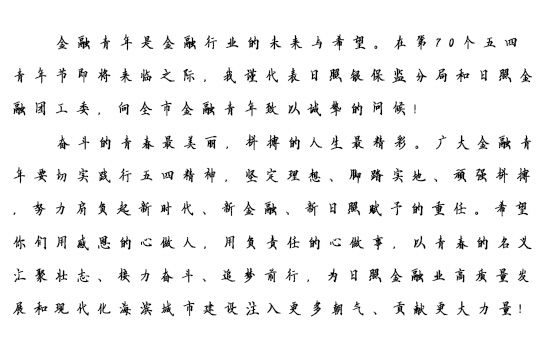 金融青年是金融行业的未来与希望。在第70个五四
青年节即将来临之际，我谨代表日照银保监分局和日照金
融团工委，向全市金融青年致以诚挚的问候！
奋斗的青春最美丽，拼搏的人生最精彩。广大金融青
年要切实践行五四精神，坚定理想、脚踏实地、顽强拼搏
，努力肩负起新时代、新金融、新日照赋予的重任。希望
你们用感恩的心做人，用负责任的心做事，以青春的名义
汇聚壮志、接力奋斗、追梦前行，为日照金融业高质量发
展和现代化海滨城市建设注入更多朝气、贡献更大力量！